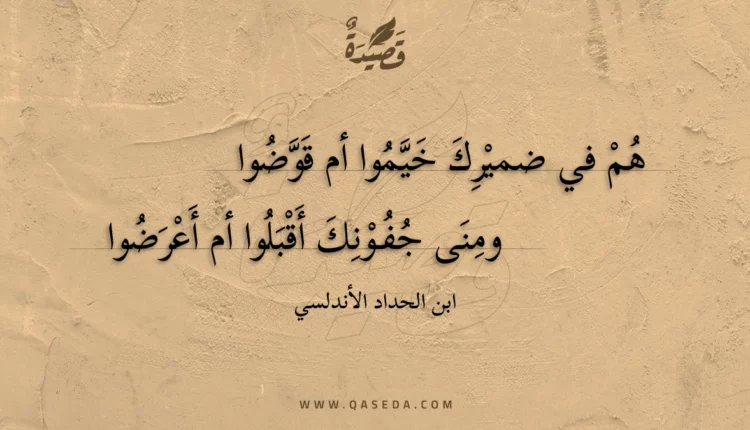 قَصِيْدَةٌ
هُمْ في ضميْرِكَ خَيَّمُوا أم قَوَّضُوا
ومِنَى جُفُوْنِكَ أَقْبَلُوا أم أَعْرَضُوا
ابن الحداد الأندلسي
WWW.QASEDA.COM